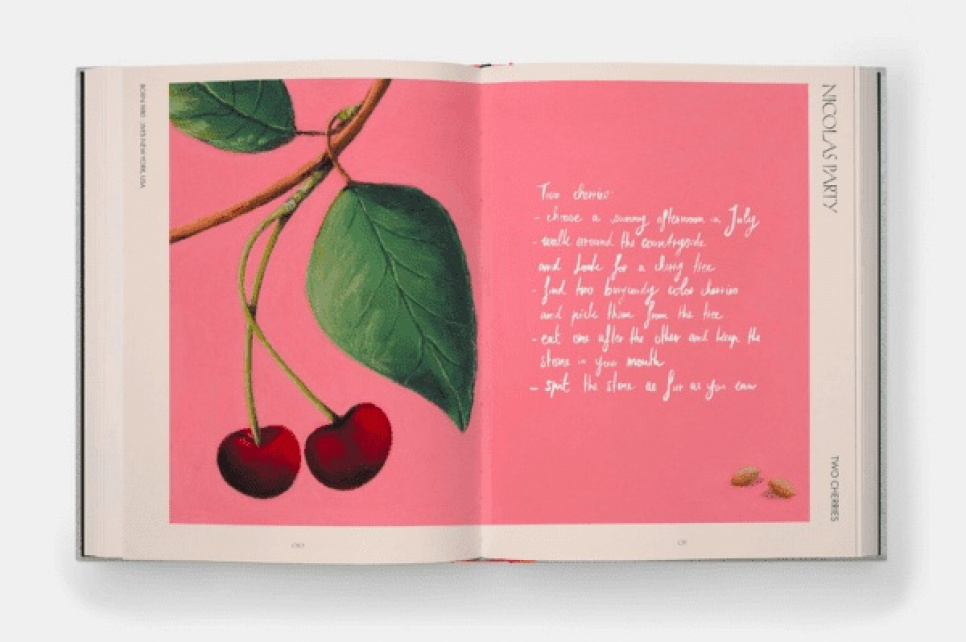 BORN 1980 LIVES NEW YORK, USA
NICOLAS PARTY
Two cherries:
- choose a sunny afternoon in July
- walk around the countryside
and look for a cherry tree
- find two burgundy color cherries
and pick them from the tree
- eat one after the other and keep the
stone in your mouth
- spit the stone as far as you can
TWO CHERRIES